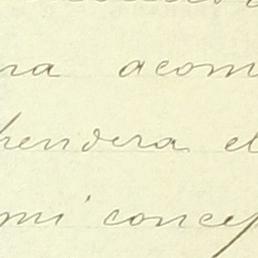 na acom
hendera el
mi concep